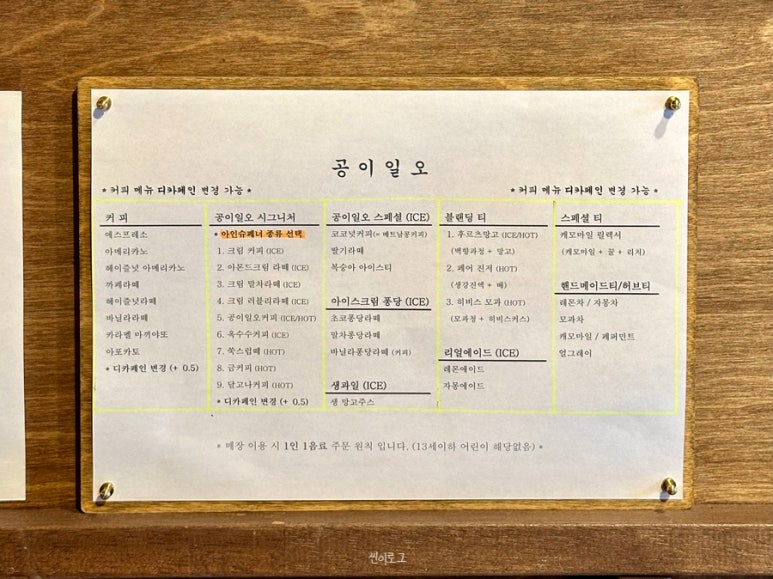 공이일오
* 커피 메뉴 디카페인 변경 가능 *
* 커피 메뉴 디카페인 변경 가능 *
커 피
에스프레소
아메리카노
헤이즐넛 아메리카노
까페라떼
헤이즐넛라떼
바닐라라떼
카라멜 마끼야또
아포카토
* 디카페인 변경 (+ 0.5)
공이일오 시그니처
* 아인슈페너 종류 선택
1. 크림 커피 (ICE)
2. 아몬드크림 라떼 (ICE)
3. 크림 말차라떼 (ICE)
4. 크림 러블리라떼 (ICE)
5. 공이일오커피 (ICE/HOT)
6. 옥수수커피 (ICE)
7. 쑥스럽떼 (HOT)
8. 금커피 (HOT)
9. 달고나커피 (HOT)
* 디카페인 변경 (+ 0.5)
공이일오 스페셜 (ICE)
코코넛커피(= 베트남콩커피)
딸기라떼
복숭아 아이스티
아이스크림 퐁당 (ICE)
초코퐁당라떼
말차퐁당라떼
바닐라퐁당라떼 (커피)
생과일 (ICE)
생 망고주스
블랜딩 티
1. 후르츠망고 (ICE/HOT)
(백향과청 + 망고)
2. 페어 진저 (HOT)
(생강진액 + 배)
3. 히비스 모과 (HOT)
(모과청 + 히비스커스)
리얼에이드 (ICE)
레몬에이드
자몽에이드
스페셜 티
캐모마일 릴렉서
(캐모마일 + 꿀 + 리치)
핸드메이드티/허브티
레몬차 / 자몽차
모과차
캐모마일 / 페퍼민트
얼그레이
* 매장 이용 시 1인 1음료 주문 원칙 입니다. (13세이하 어린이 해당없음) *
씬이로그